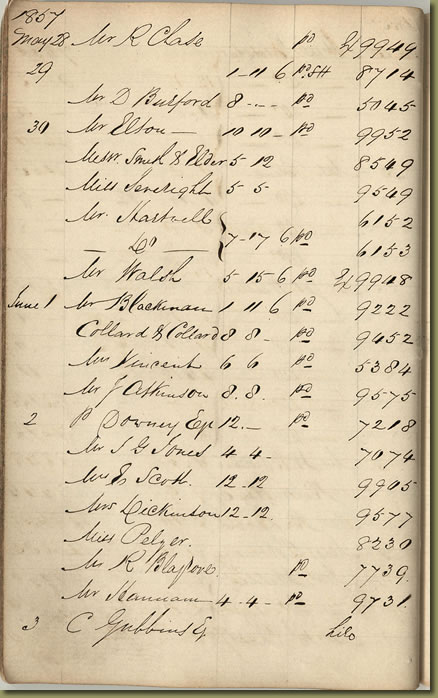 1857
May 28 Mr R Chase pd 9949
29 1-11 6 pd 8714
Mr D Burford 8 - - pd 5045
30 Mr Elton — 10 10 - pd 9952
Messr. Smith & Elder 5 12 8549
Miss 5 5- 9549
Mr. Hartwell 6152
— Do — 7-17 6 pd 6153
Mr Walsh 5 15 6 pd 9948
June 1 Mr Blackman 1 11 6 pd 9222
Collard & Collard 8 8 - pd 9452
Mrs Vincent 6 6 pd 5384
Mr J Atkinson 8.8. pd 9575
2 P Downey 12.- pd 7218
Mr S G Jones 4 4- 7074
Scott. 12-12 9905
Mrs Dickinson 12-12. 9577
Miss Pelzer. 8230
Mr R Blagrove. pd 7739.
Mr Hannam 4.4- pd 9731.
3 C Gubbins